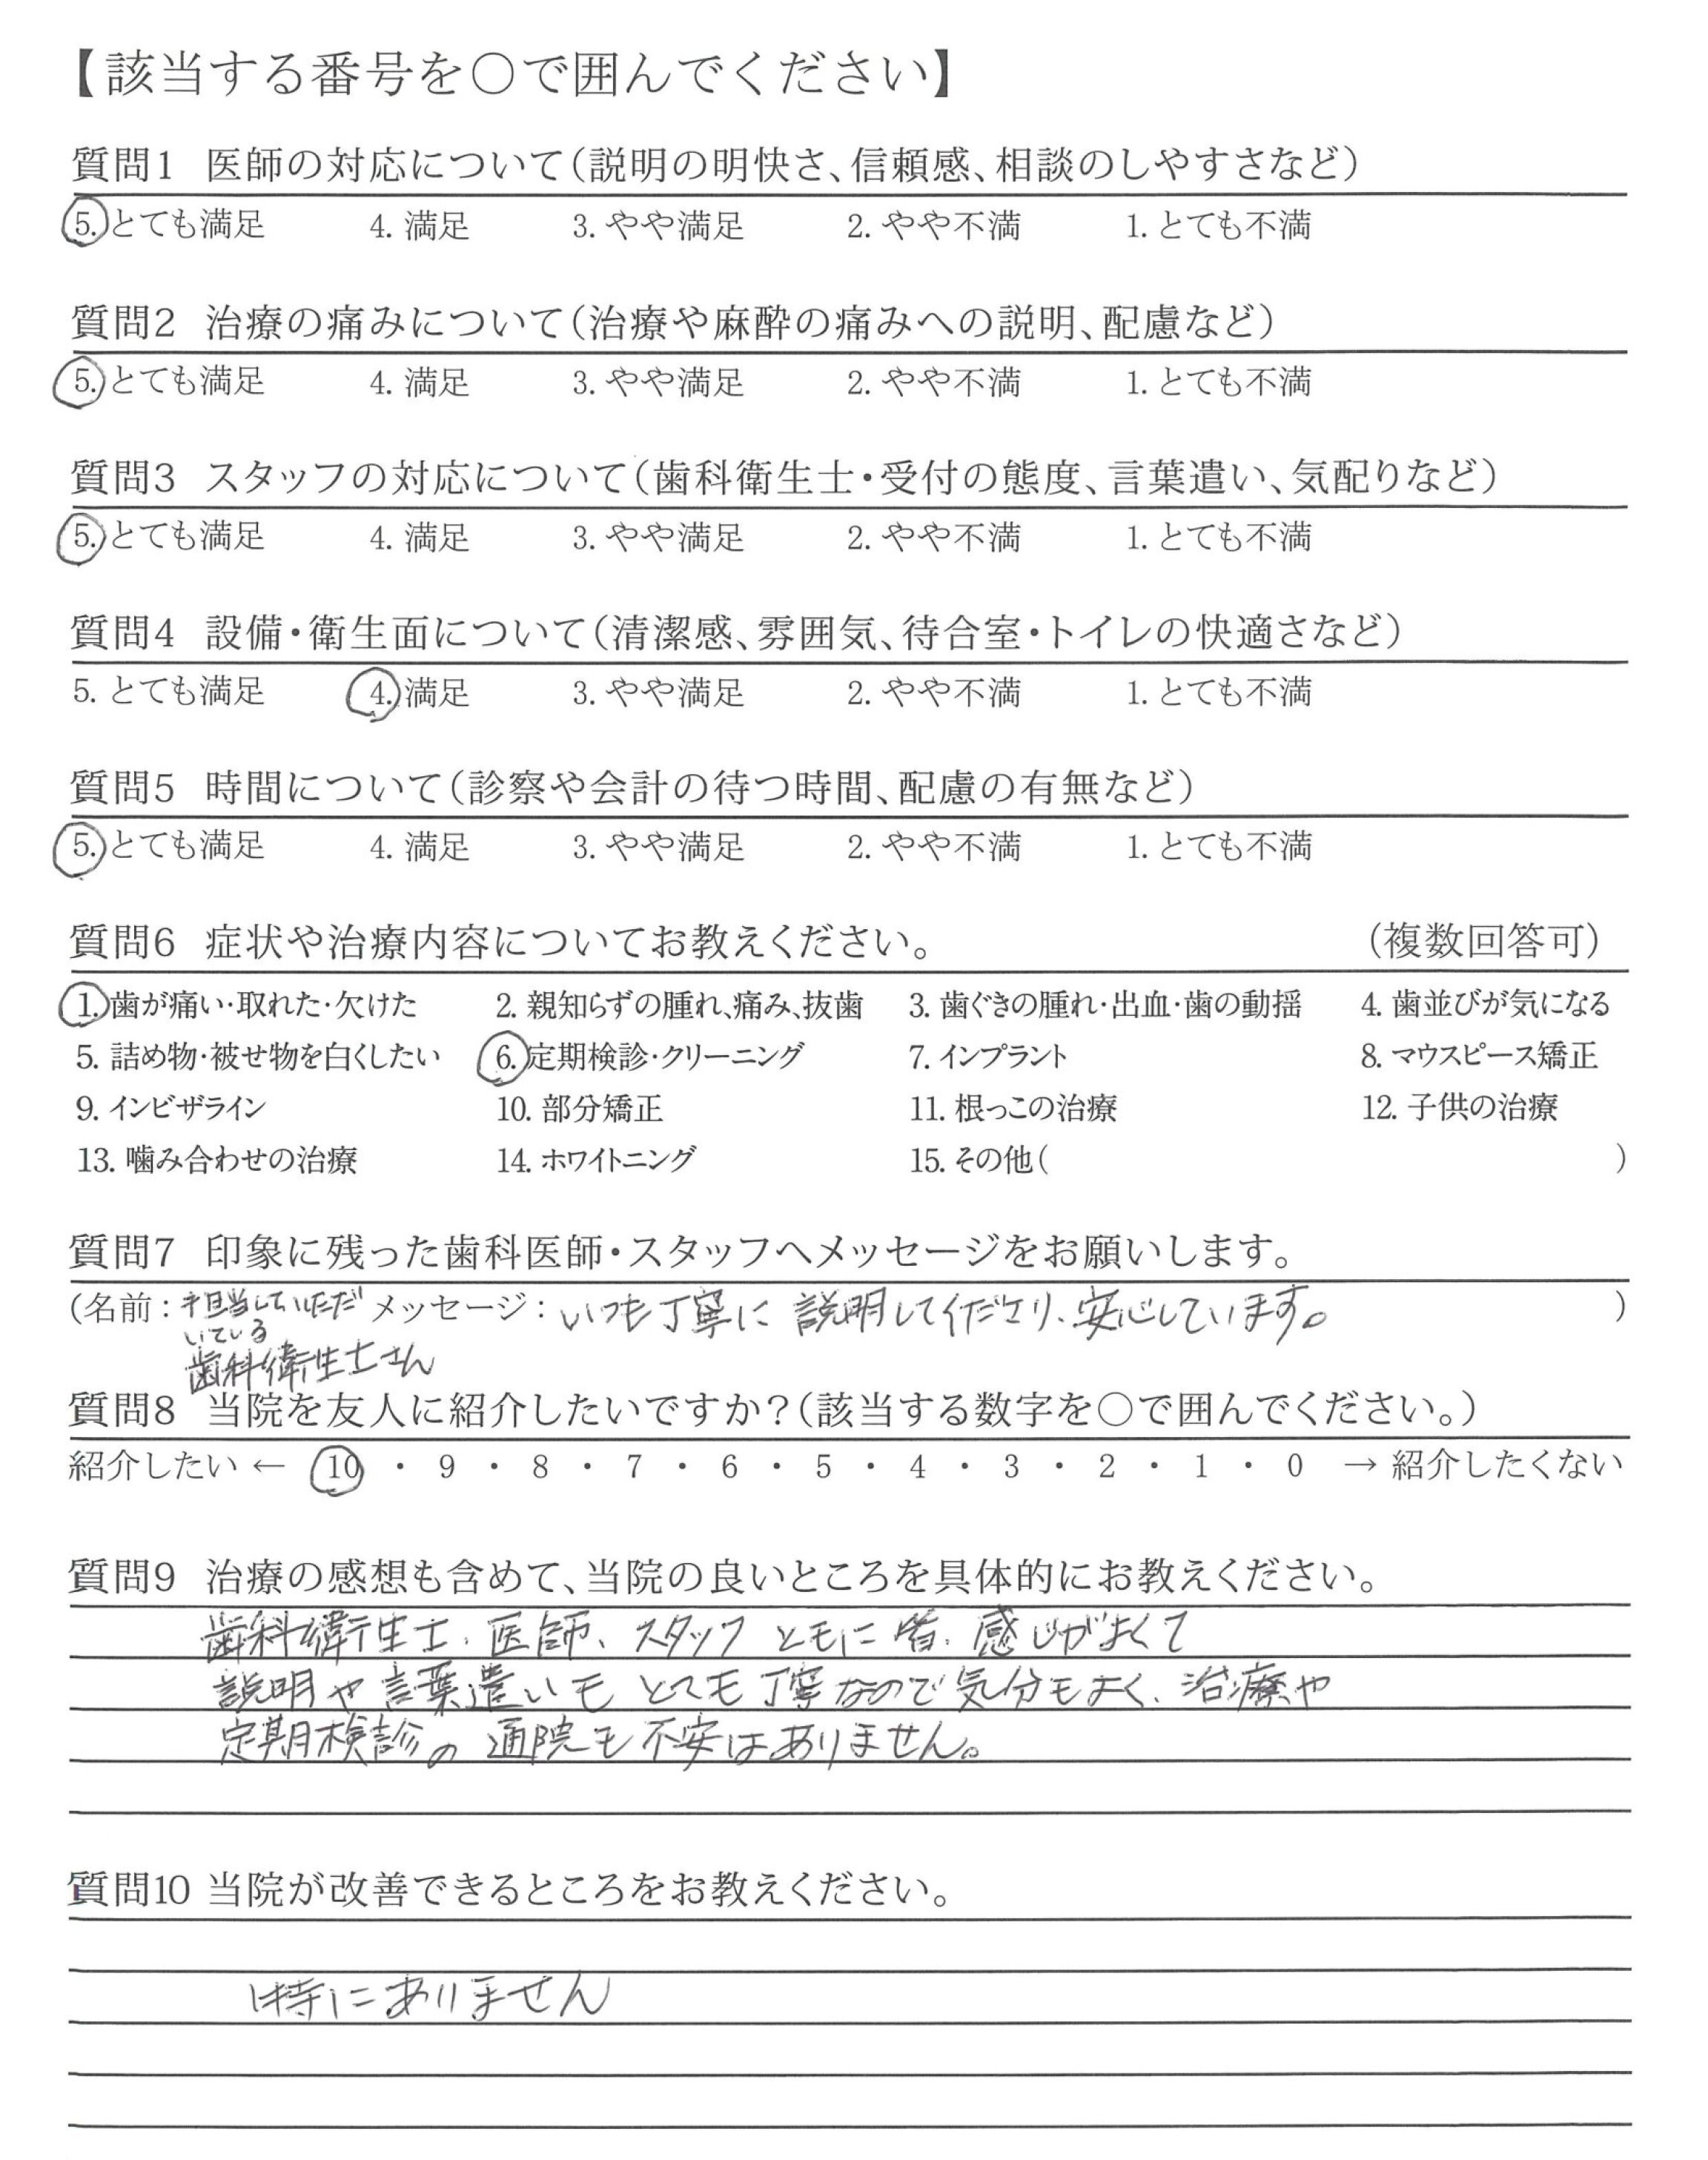 【該当する番号を○で囲んでください】
質問1 医師の対応について(説明の明快さ、信頼感、相談のしやすさなど)
5. とても満足 4. 満足 3. やや満足 2. やや不満 1. とても不満
質問2 治療の痛みについて(治療や麻酔の痛みへの説明、配慮など)
5. とても満足 4. 満足 3. やや満足 2. やや不満 1. とても不満
質問3 スタッフの対応について(歯科衛生士・受付の態度、言葉遣い、気配りなど)
5. とても満足 4. 満足 3. やや満足 2. やや不満 1. とても不満
質問4 設備・衛生面について(清潔感、雰囲気、待合室・トイレの快適さなど)
5. とても満足 4. 満足 3. やや満足 2. やや不満 1. とても不満
質問5 時間について(診察や会計の待つ時間、配慮の有無など)
5. とても満足 4. 満足 3. やや満足 2. やや不満 1. とても不満
質問6 症状や治療内容についてお教えください。 (複数回答可)
1. 歯が痛い・取れた・欠けた 2. 親知らずの腫れ、痛み、抜歯 3. 歯ぐきの腫れ・出血・歯の動揺 4. 歯並びが気になる
5. 詰め物・被せ物を白くしたい 6. 定期検診・クリーニング 7. インプラント 8. マウスピース矯正
9. インビザライン 10. 部分矯正 11. 根っこの治療 12. 子供の治療
13. 噛み合わせの治療 14. ホワイトニング 15. その他( )
質問7 印象に残った歯科医師・スタッフへメッセージをお願いします。
(名前:担当していただ メッセージ:いつも丁寧に説明してくださり、安心しています。 )
いている
歯科衛生士さん
質問8 当院を友人に紹介したいですか?(該当する数字を○で囲んでください。)
紹介したい ← 10 ・ 9 ・ 8 ・ 7 ・ 6 ・ 5 ・ 4 ・ 3 ・ 2 ・ 1 ・ 0 → 紹介したくない
質問9 治療の感想も含めて、当院の良いところを具体的にお教えください。
歯科衛生士、医師、スタッフともに皆、感じがよくて
説明や言葉遣いもとても丁寧なので気分もよく、治療や
定期検診の通院も不安はありません。
質問10 当院が改善できるところをお教えください。
特にありません